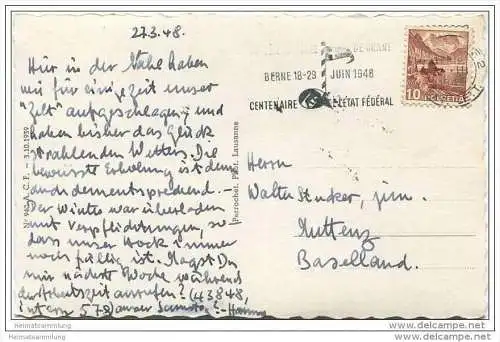 27.3.48.
Hier in der Nähe haben
wir für einige Zeit unser
"Zelt" aufgeschlagen und
haben bisher das Glück
strahlenden Wetters. Die
bewusste Erholung ist dem-
entsprechend.
Der Winter war überladen
mit Verpflichtungen, so
dass unser Hock immer
noch fällig ist. Magst Du
mir nächste Woche während
der Arbeitszeit anrufen? (43848,
intern 572)
No 940 A. C. F. - 3.10.1939
Perrochet, Phot. Lausanne
BERNE 18-29 JUIN 1948
CENTENAIRE DE L'ETAT FÉDÉRAL
10 HELVETIA
Herrn
Walter Stucker, jun.
Muttenz
Baselland.
Heimatsammlung
http://www.delcampe.net